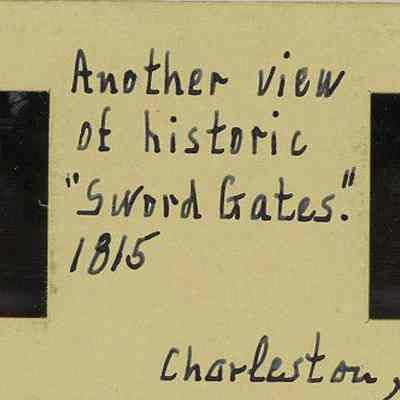 Another view
of historic
"Sword Gates."
1815
Charleston,